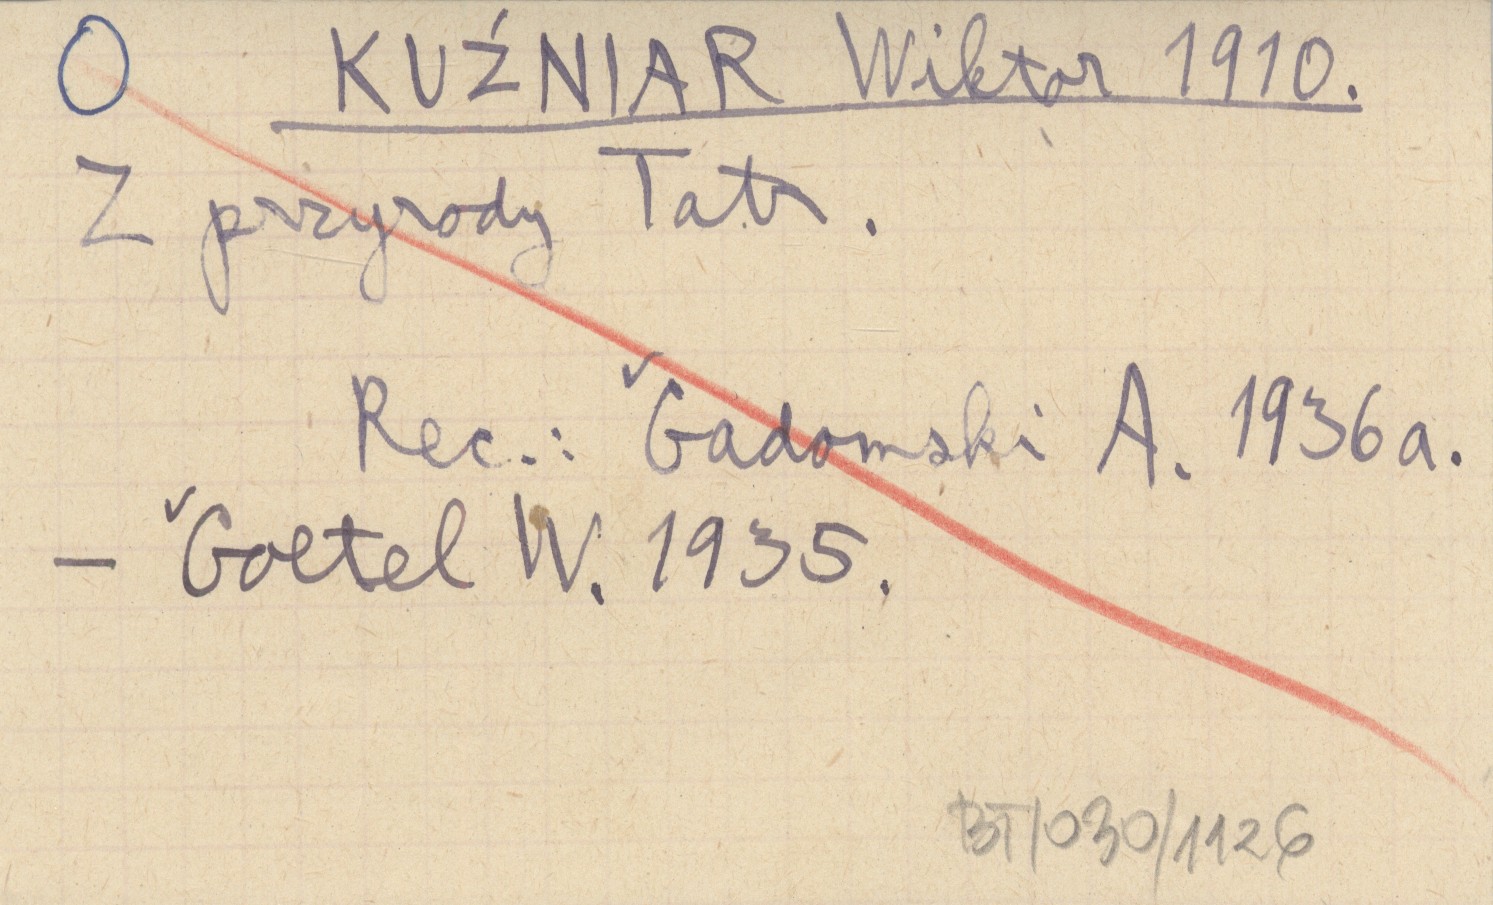 O KUŹNIAR Wiktor 1910.
Z przyrody Tatr.
Rec.: ✓Gadomski A. 1936a.
– ✓Goetel W. 1935.
BT/030/1126